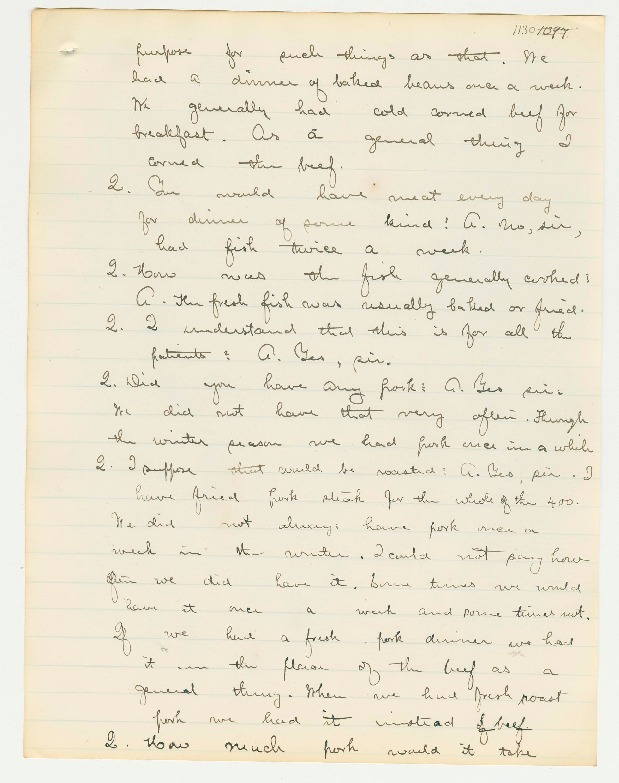 1130 1097
purpose for such things as that. We
had a dinner of baked beans once a week.
We generally had cold corned beef for
breakfast. As a general thing I
corned the beef.
Q. You would have meat every day
for dinner of some kind? A. No, sir,
had fish twice a week.
Q. How was the fish generally cooked?
A. The fresh fish was usually baked or fried.
Q. I understand that this is for all the
patients? A. Yes, sir.
Q. Did you have any pork? A. Yes sir.
We did not have that very often. Through
the winter season we had pork once in a while
Q. I suppose that would be roasted? A. Yes, sir. I
have fried pork steak for the whole of the 400.
We did not always have pork once a
week in the winter. I could not say how
often we did have it. Some times we would
have it once a week and some times not.
If we had a fresh pork dinner we had
it in the place of the beef as a
general thing. When we had fresh roast
pork we had it instead of beef
Q. How much pork would it take